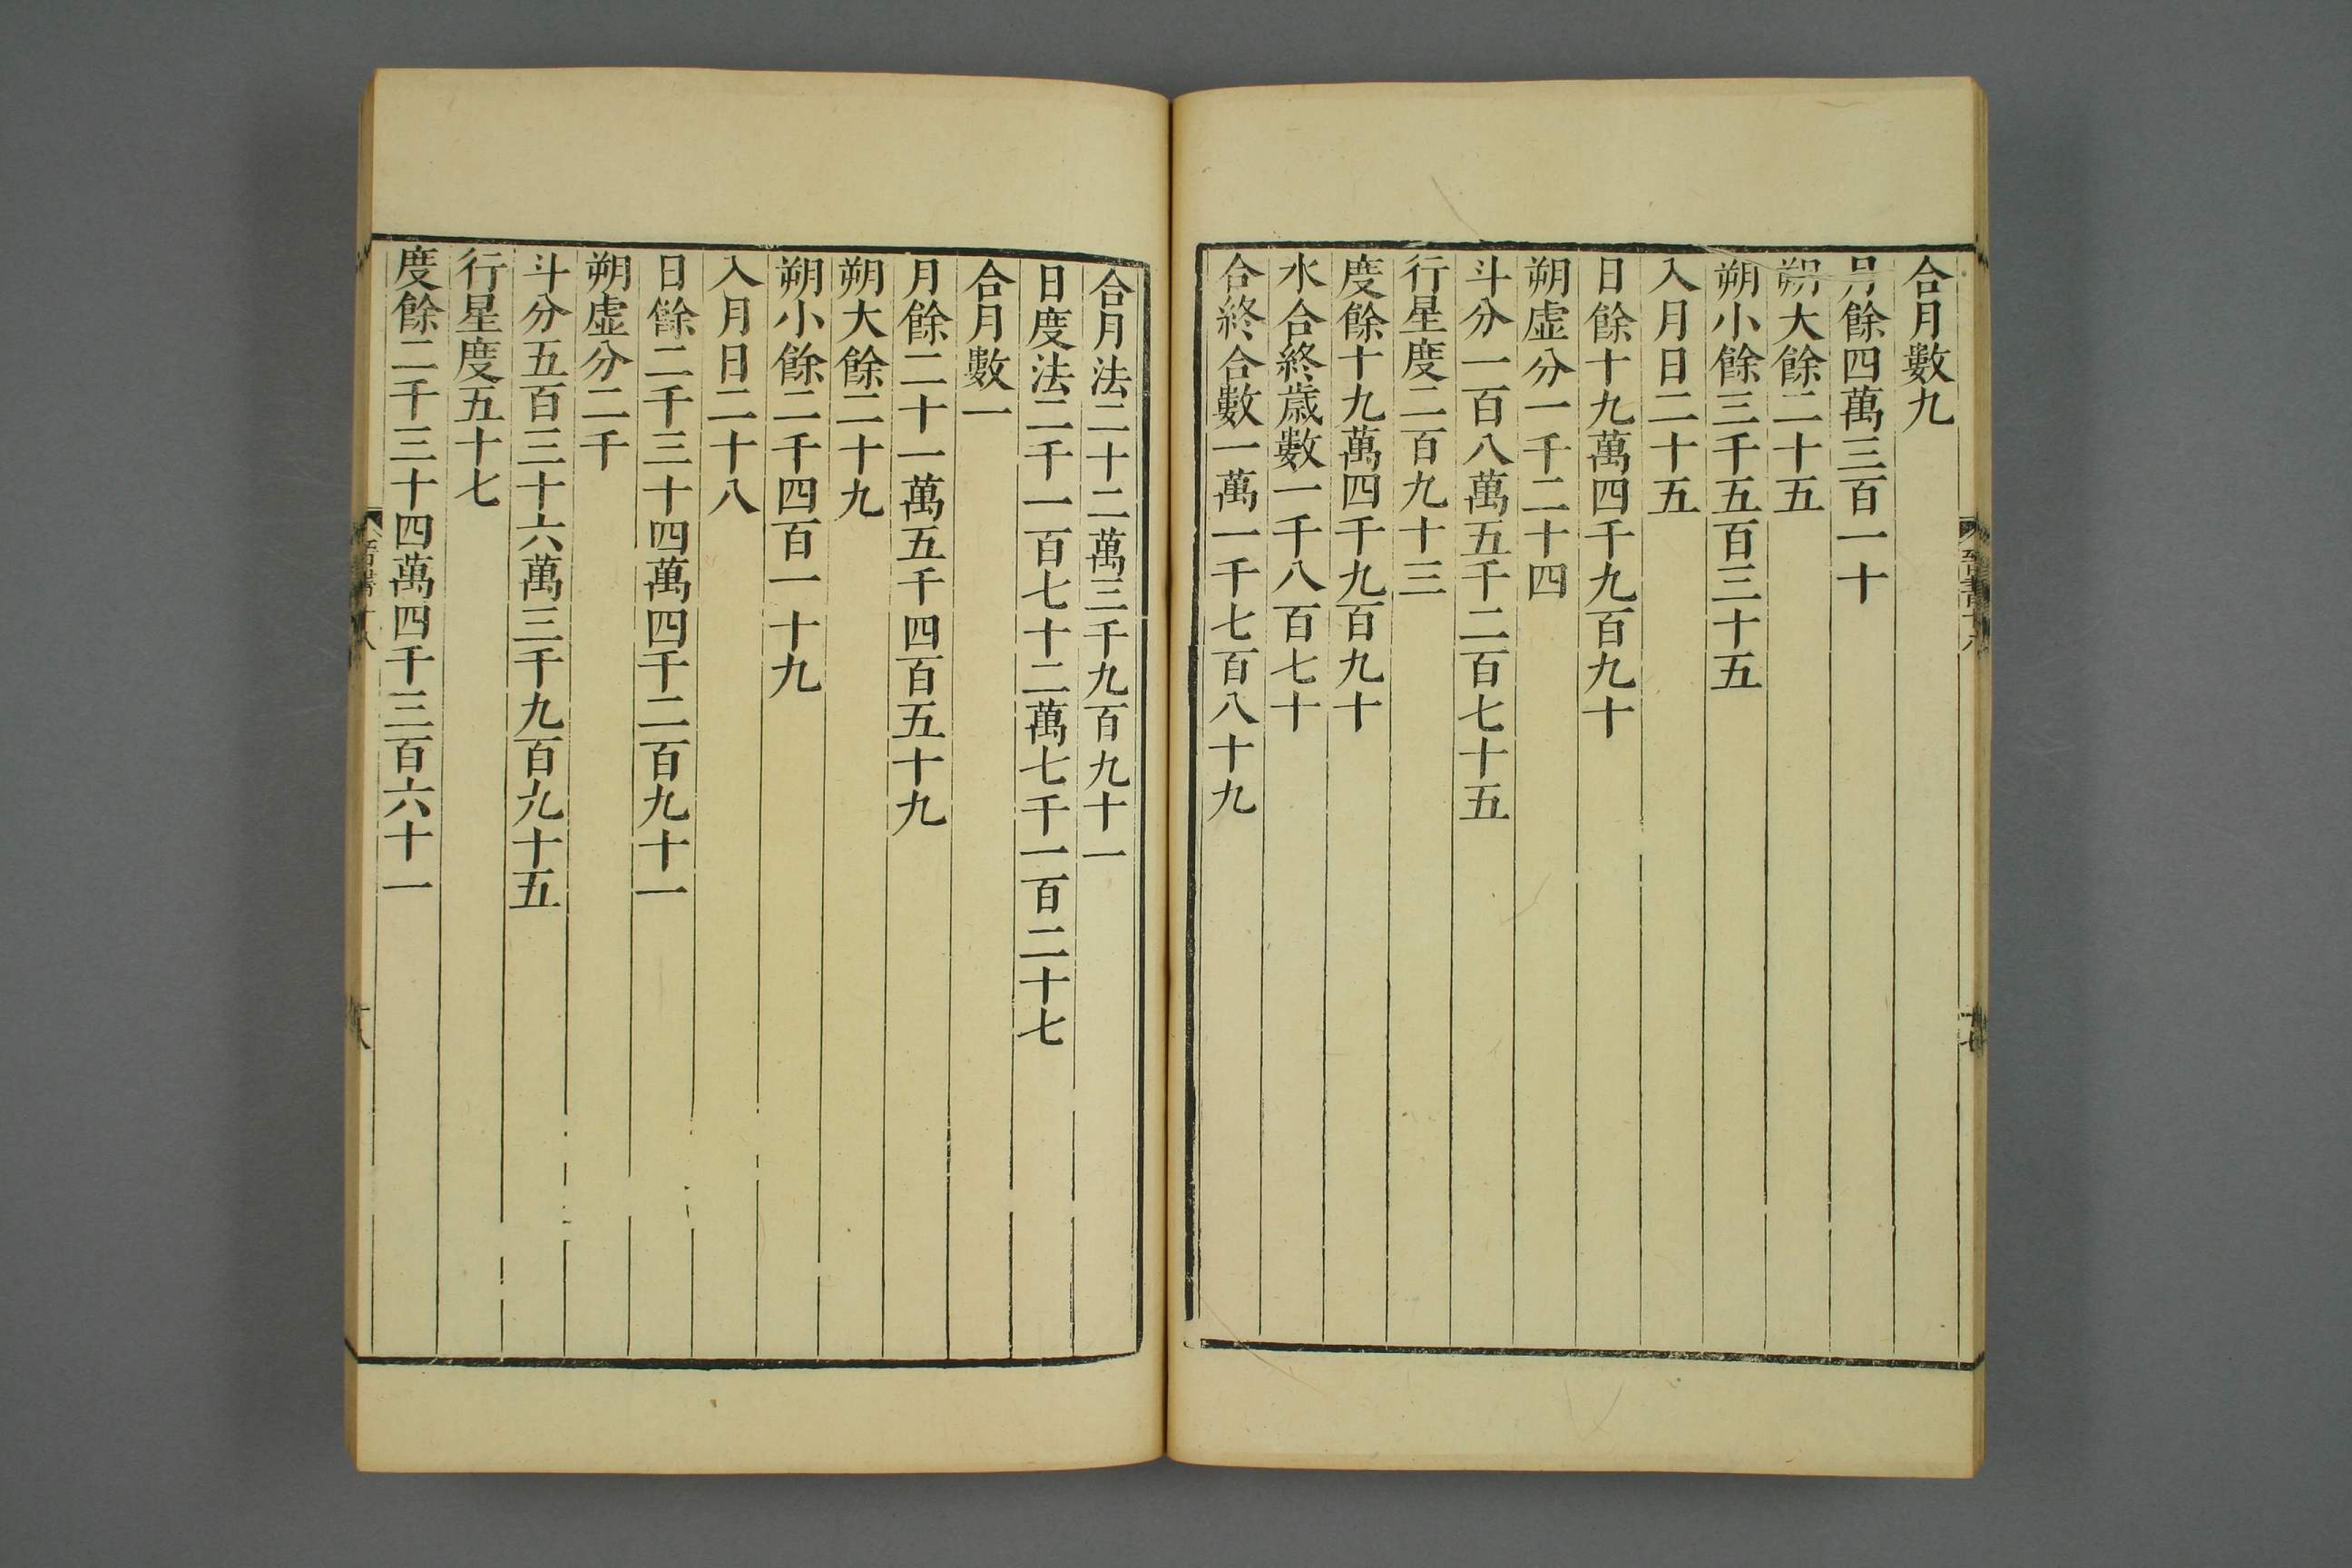 合月數九
月餘四萬三百一十
朔大餘二十五
朔小餘三千五百三十五
入月日二十五
日餘十九萬四千九百九十
朔虛分一千二十四
斗分一百八萬五千二百七十五
行星度二百九十三
度餘十九萬四千九百九十
水合終歲數一千八百七十
合終合數一萬一千七百八十九
合月法二十二萬三千九百九十一
日度法二千一百七十二萬七千一百二十七
合月數一
月餘二十一萬五千四百五十九
朔大餘二十九
朔小餘二千四百一十九
入月日二十八
日餘二千三十四萬四千二百九十一
朔虛分二千
斗分五百三十六萬三千九百九十五
行星度五十七
度餘二千三十四萬四千三百六十一